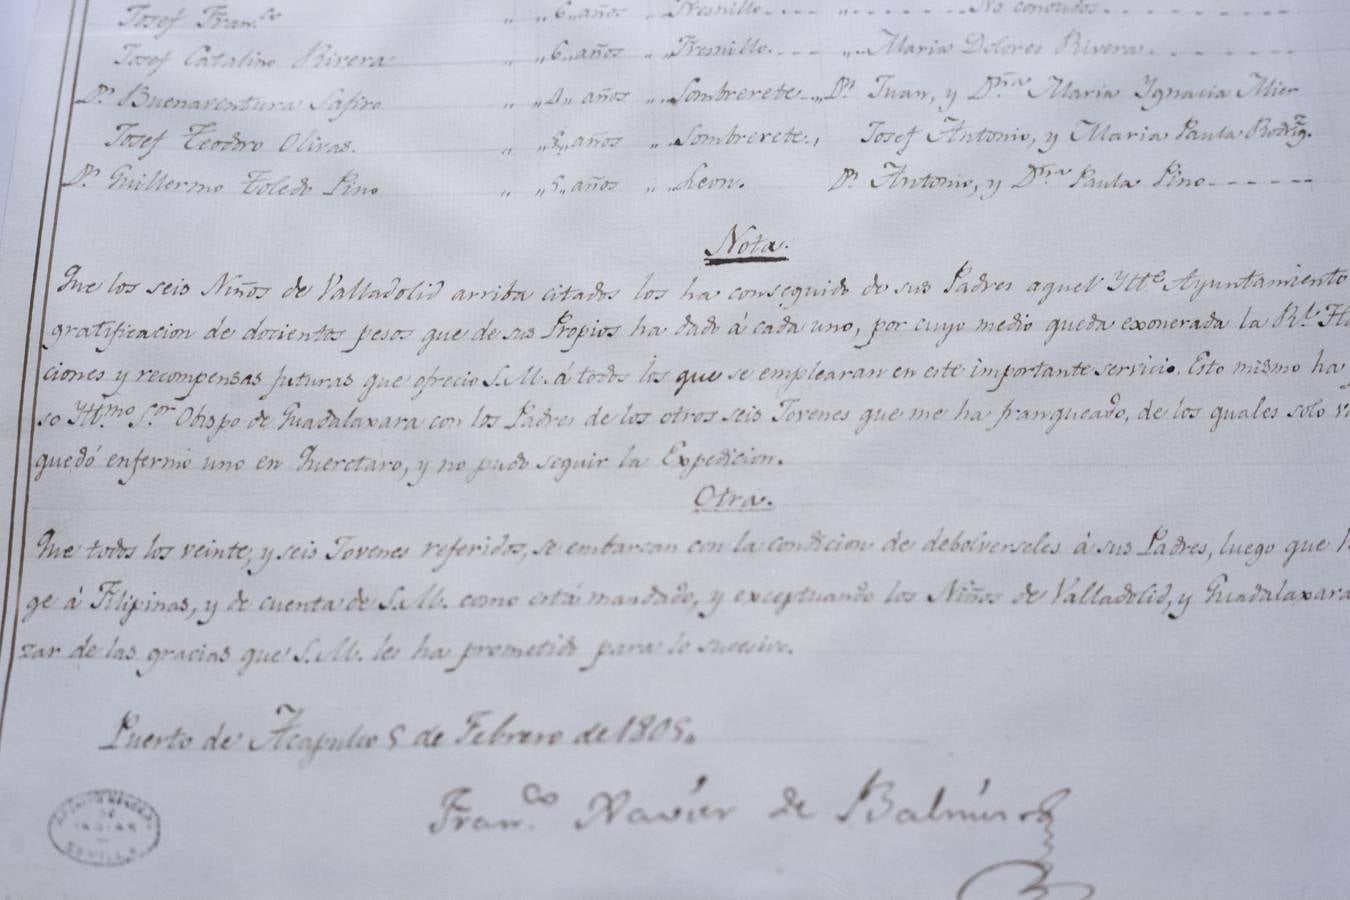 Josef Fran.co „ „6„ años „ Fresnillo. „ No conocidos
Josef Catalino Rivera „ „6„ años „ „Fresnillo. „ „Maria Dolores Rivera
D.n Buenaventura Safiro „ „4„ años „ „Sombrerete „D.n Juan, y D.ña Maria Ygnacia Mier
Josef Teodoro Olivas. „ „ años „ Sombrerete., Josef Antonio, y Maria Paula Rodrig.z
D.n Guillermo Toledo Pino „ „5„ años „ „Leon. D.n Antonio, y D.ña Paula Pino
Nota.
Que los seis Niños de Valladolid arriba citados los ha conseguido de sus Padres aquel Ytt.e Ayuntamiento
gratificacion de docientos pesos que de sus Propios ha dado á cada uno, por cuyo medio queda exonerada la R.l
ciones y recompensas futuras que ofrecio S.M. á todos los que se emplearan en este importante servicio. Esto mismo ha
so Ytt.mo S.or Obispo de Guadalaxara con los Padres de los otros seis Jovenes que me ha franqueado, de los quales solo
quedó enfermo uno en Queretaro, y no pudo seguir la Expedicion.
Otra.
Que todos los veinte, y seis Jovenes referidos, se embarcan con la condicion de debolverseles á sus Padres, luego que
ge á Filipinas, y de cuenta de S.M. como está mandado, y exceptuando los Niños de Valladolid, y Guadalaxara
zar de las gracias que S.M. les ha prometido para lo sucesivo.
Puerto de Acapulco 5 de Febrero de 1805.
Fran.co Xavier de Balmis
ARCHIVO GENERAL
DE
INDIAS
SEVILLA